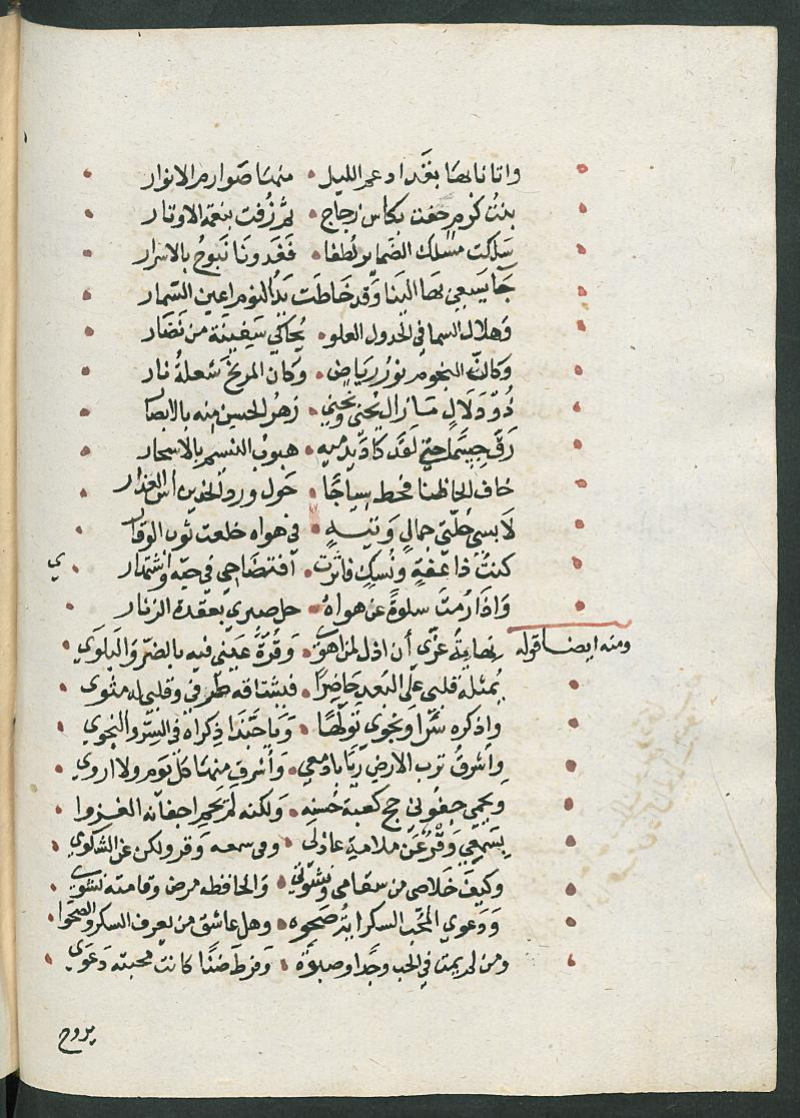 واتانا بها بغداد عم الليل • منها صوارم الانوار
بنت كرم حفت بكاس زجاج • ثم زفت بنغمة الاوتار
سلكت مسلك الضماير لطفا • فغدونا نبوح بالاسرار
جا يسعي بها الينا وقد خاطت يد النوم اعين السمار
وهلال السما في الجدول العلو • يحاكي سفينة من نضار
وكان النجوم نور رياض • وكان المريخ شعلة نار
ذو دلال ما زال يجنى ويجنى • زهر الحسن منه بالابصار
رق جسما حتي لقد كاد يدميه • هبوب النسيم بالاسحار
خاف الحاظنا فحط سياجا • حول ورد الخدين اس العذار
لابسي حلتي جمال وتيه • في هواه خلعت ثوب الوقار
كنت ذا عفة ونسك فاثرت • افتضاحي في حبه واشتهاري
واذا رمت سلوة عن هواه • حل صبري بعقدة الزنار
ومنه ايضا قوله نهاية عزي أن اذل لمن اهوى • وقرة عيني فيه بالضر والبلوي
يمثله قلبي علي البعد حاضرا • فيشتاقه طرفي وقلبي له مثوى
واذكره سرا ونجوى تولها • ويا حبذا ذكراه في السر والنجوي
واشرق ترب الارض ريا بادمعي • وأشرق منها كل يوم ولا اروي
ويحمي جفوني حج كعبة حسنه • ولكنه لم يحم اجفانه الغزوا
بسمعي وقر عن ملامة عاذلي • وفي سمعه وقر ولكن عن الشكوي
وكيف خلاصي من سقامي ونشوتي • والحاظه مرضى وقامته نشوي
ودعوي المحب السكر اية صحوه • وهل عاشق من يعرف السكر والصحوا
ومن لم يمت في الحب وجدا وصبوة • وفرط ضنا كانت محبته دعوي
يروح